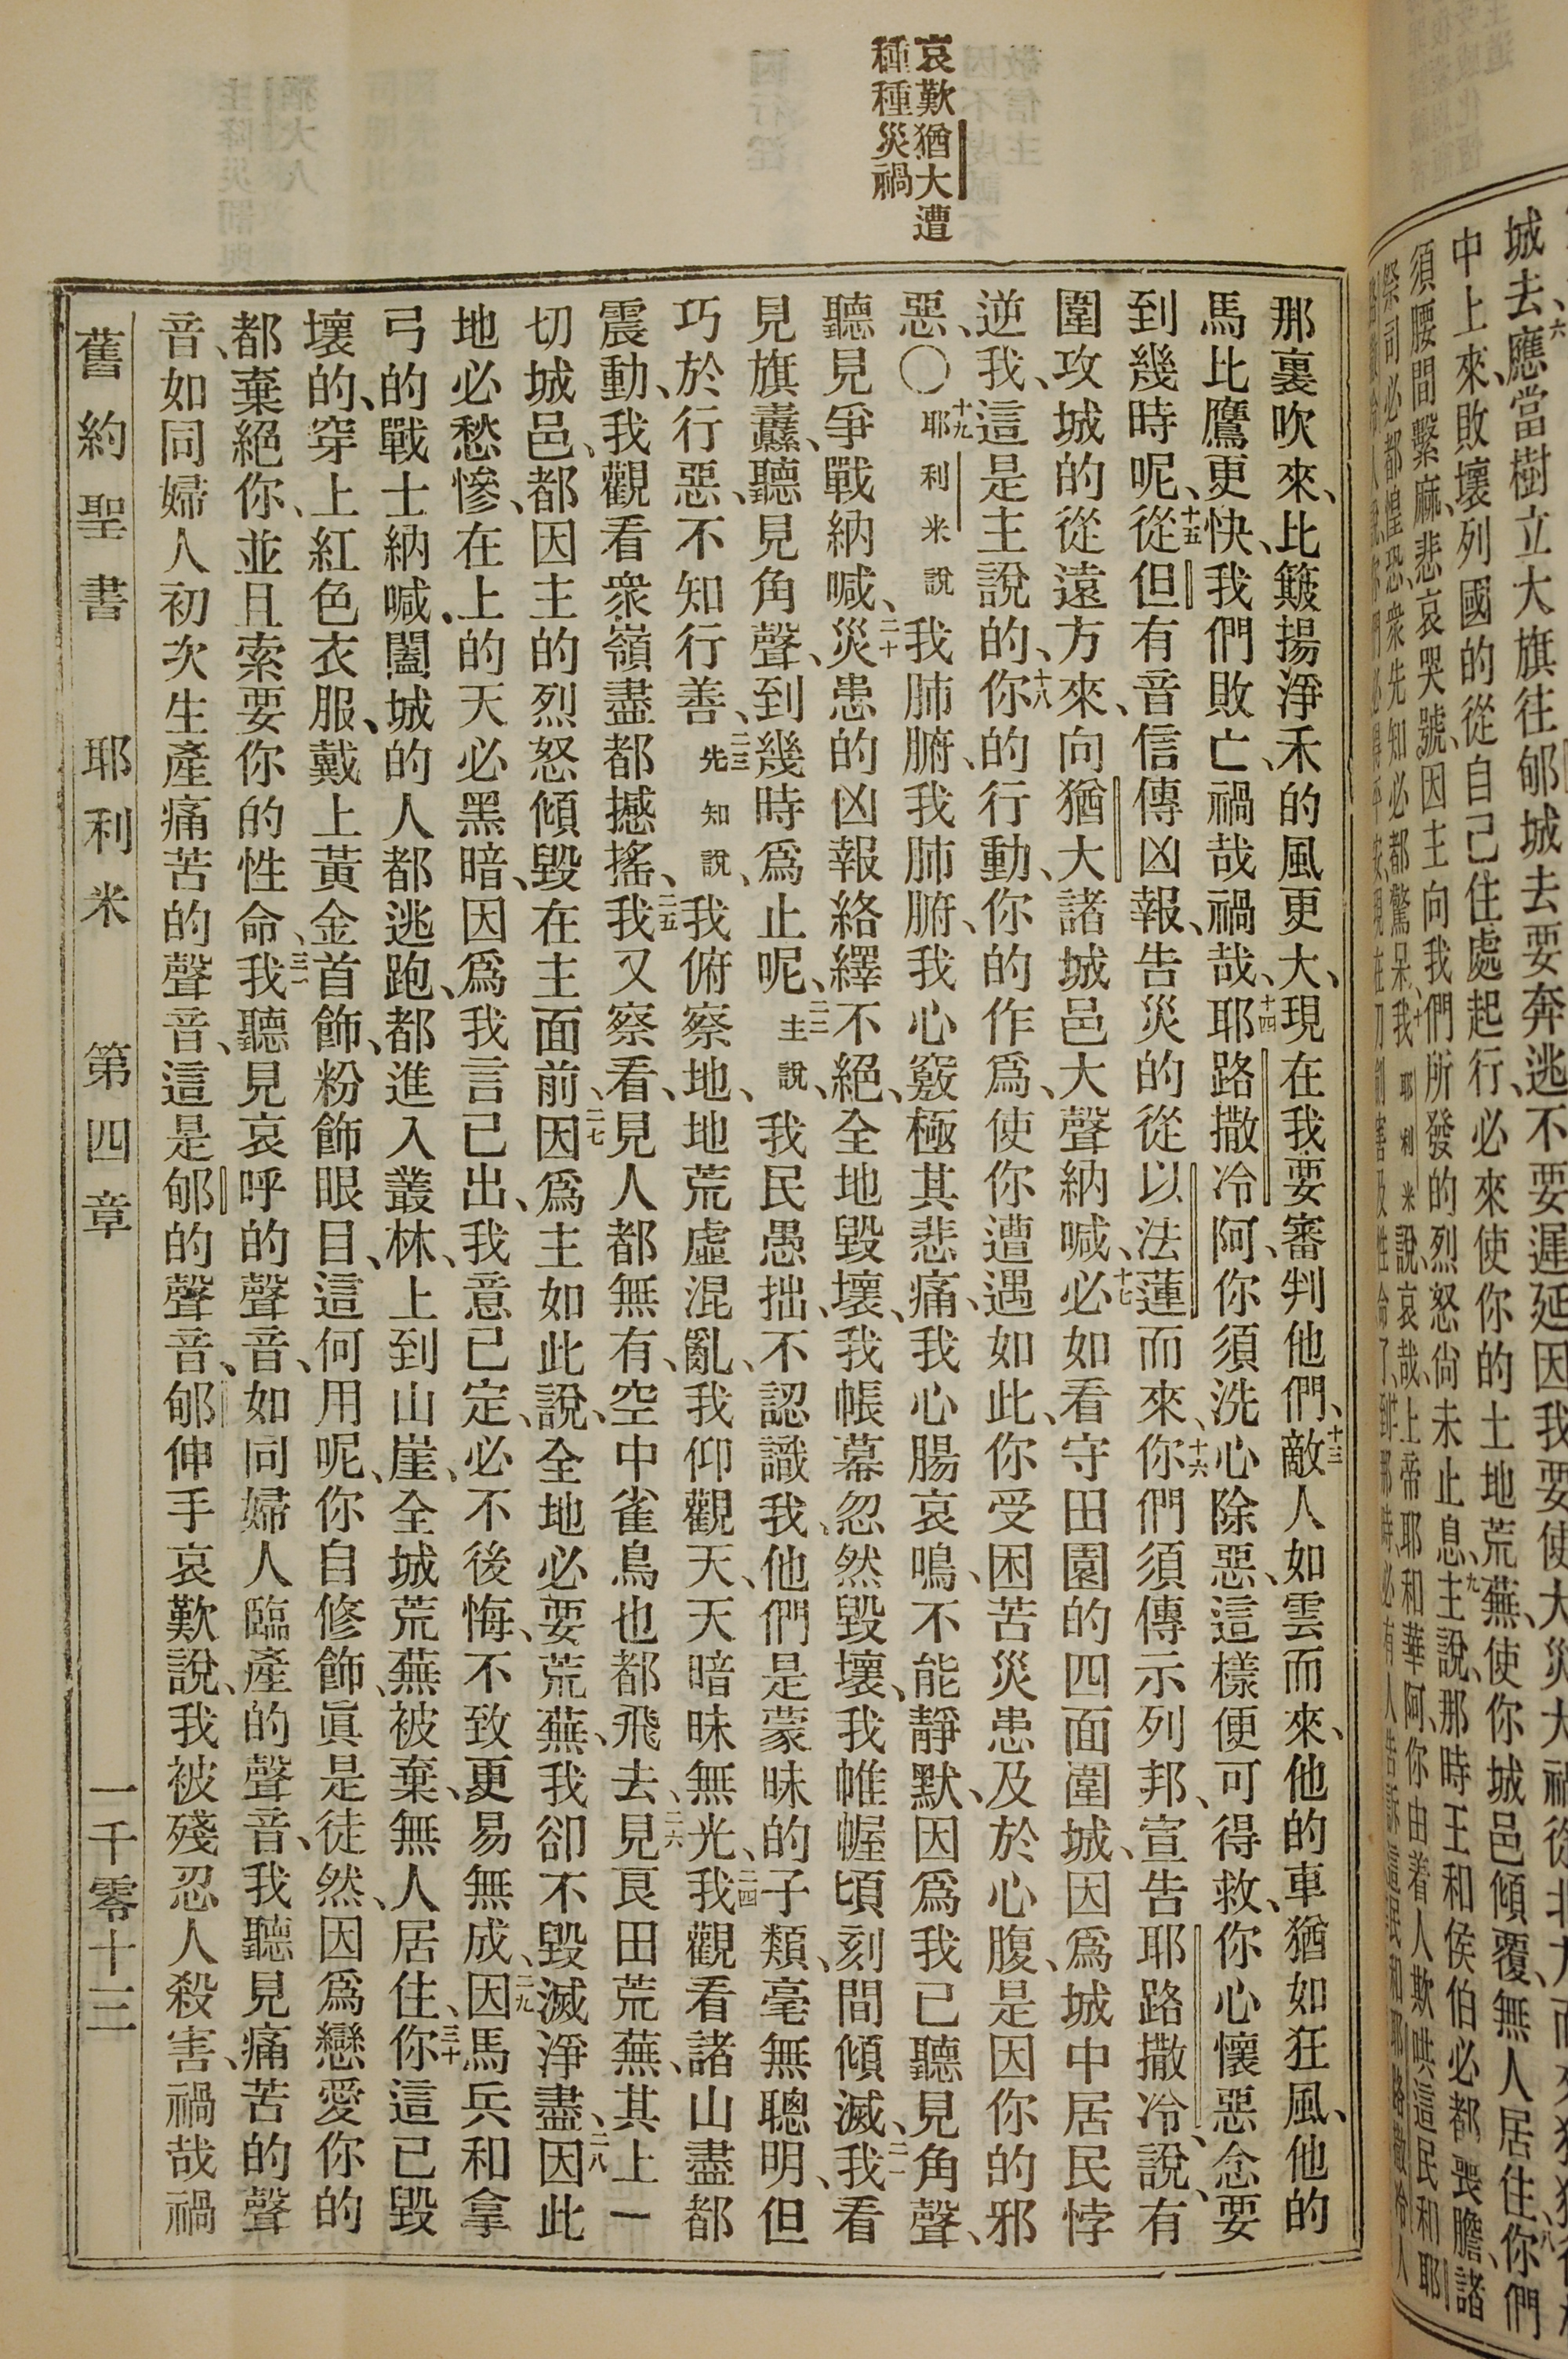 城去、六應當樹立大旗往郇城去要奔逃不要遲延因我要使大災大禍從北方而來
中上來、敗壞列國的從自己住處起行、必來使你的土地荒蕪、使你城邑傾覆、無人居住、八你們
須腰間繫麻、悲哀哭號、因主向我們所發的烈怒尙未止息、九主說、那時王和侯伯必都喪膽、諸
祭司必都惶恐、衆先知必都驚呆、十我耶利米說、哀哉、上帝耶和華阿、你由着人欺哄這民和耶
哀歎猶大遭
種種災禍
那裏吹來、比簸揚淨禾的風更大、現在我要審判他們、十三敵人如雲而來、他的車猶如狂風、他的
馬比鷹更快、我們敗亡、禍哉禍哉、十四耶路撒冷阿、你須洗心除惡、這樣便可得救、你心懷惡念要
到幾時呢、十五從但有音信傳凶報、告災的從以法蓮而來、十六你們須傳示列邦、宣告耶路撒冷說、有
圍攻城的從遠方來、向猶大諸城邑大聲納喊、十七必如看守田園的四面圍城、因爲城中居民悖
逆我、這是主說的、十八你的行動、你的作爲、使你遭遇如此、你受困苦災患及於心腹、是因你的邪
惡、〇十九耶利米說我肺腑、我肺腑、我心竅極其悲痛、我心腸哀鳴、不能靜默、因爲我已聽見角聲、
聽見爭戰納喊、二十災患的凶報絡繹不絕、全地毀壞、我帳幕忽然毀壞、我帷幄頃刻間傾滅、二一我看
見旗纛、聽見角聲、到幾時爲止呢、二二主說、我民愚拙、不認識我、他們是蒙昧的子類、毫無聰明、但
巧於行惡、不知行善、二三先知說、我俯察地、地荒虛混亂、我仰觀天、天暗昧無光、二四我觀看諸山盡都
震動、我觀看衆嶺盡都撼搖、二五我又察看、見人都無有、空中雀鳥也都飛去、二六見良田荒蕪、其上一
切城邑、都因主的烈怒傾毀在主面前、二七因爲主如此說、全地必要荒蕪、我卻不毀滅淨盡、二八因此
地必愁慘、在上的天必黑暗、因爲我言已出、我意已定、必不後悔、不致更易無成、二九因馬兵和拿
弓的戰士納喊、闔城的人都逃跑、都進入叢林、上到山崖、全城荒蕪被棄、無人居住、三十你這已毀
壞的、穿上紅色衣服、戴上黃金首飾、粉飾眼目、這何用呢、你自修飾、眞是徒然、因爲戀愛你的
都棄絕你、並且索要你的性命、三一我聽見哀呼的聲音、如同婦人臨產的聲音、我聽見痛苦的聲
音、如同婦人初次生產痛苦的聲音、這是郇的聲音、郇伸手哀歎說、我被殘忍人殺害、禍哉禍
舊約聖書 耶利米 第四章 一千零十三